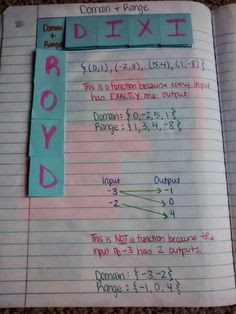 Domain + Range
20.
Domain
+
Range
D I X I
R
O
Y
D
{(0,1), (-2,3), (5,4), (1,-8)}
This is a function because every input
has EXACTLY one output.
Domain: {0,-2,5,1}
Range: {1,3,4,-8}
Input Output
-3 -1
-2 0
4
This is NOT a function because the
input of -3 has 2 outputs.
Domain: {-3,-2}
Range: {-1,0,4}